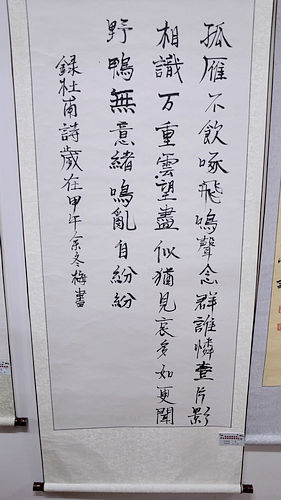 孤雁不飲啄飛鳴聲念群誰憐壹片影
相識万重雲望盡似猶見哀多如更聞
野鴨無意緒鳴亂自紛紛
錄杜甫詩歲在甲午余冬梅書